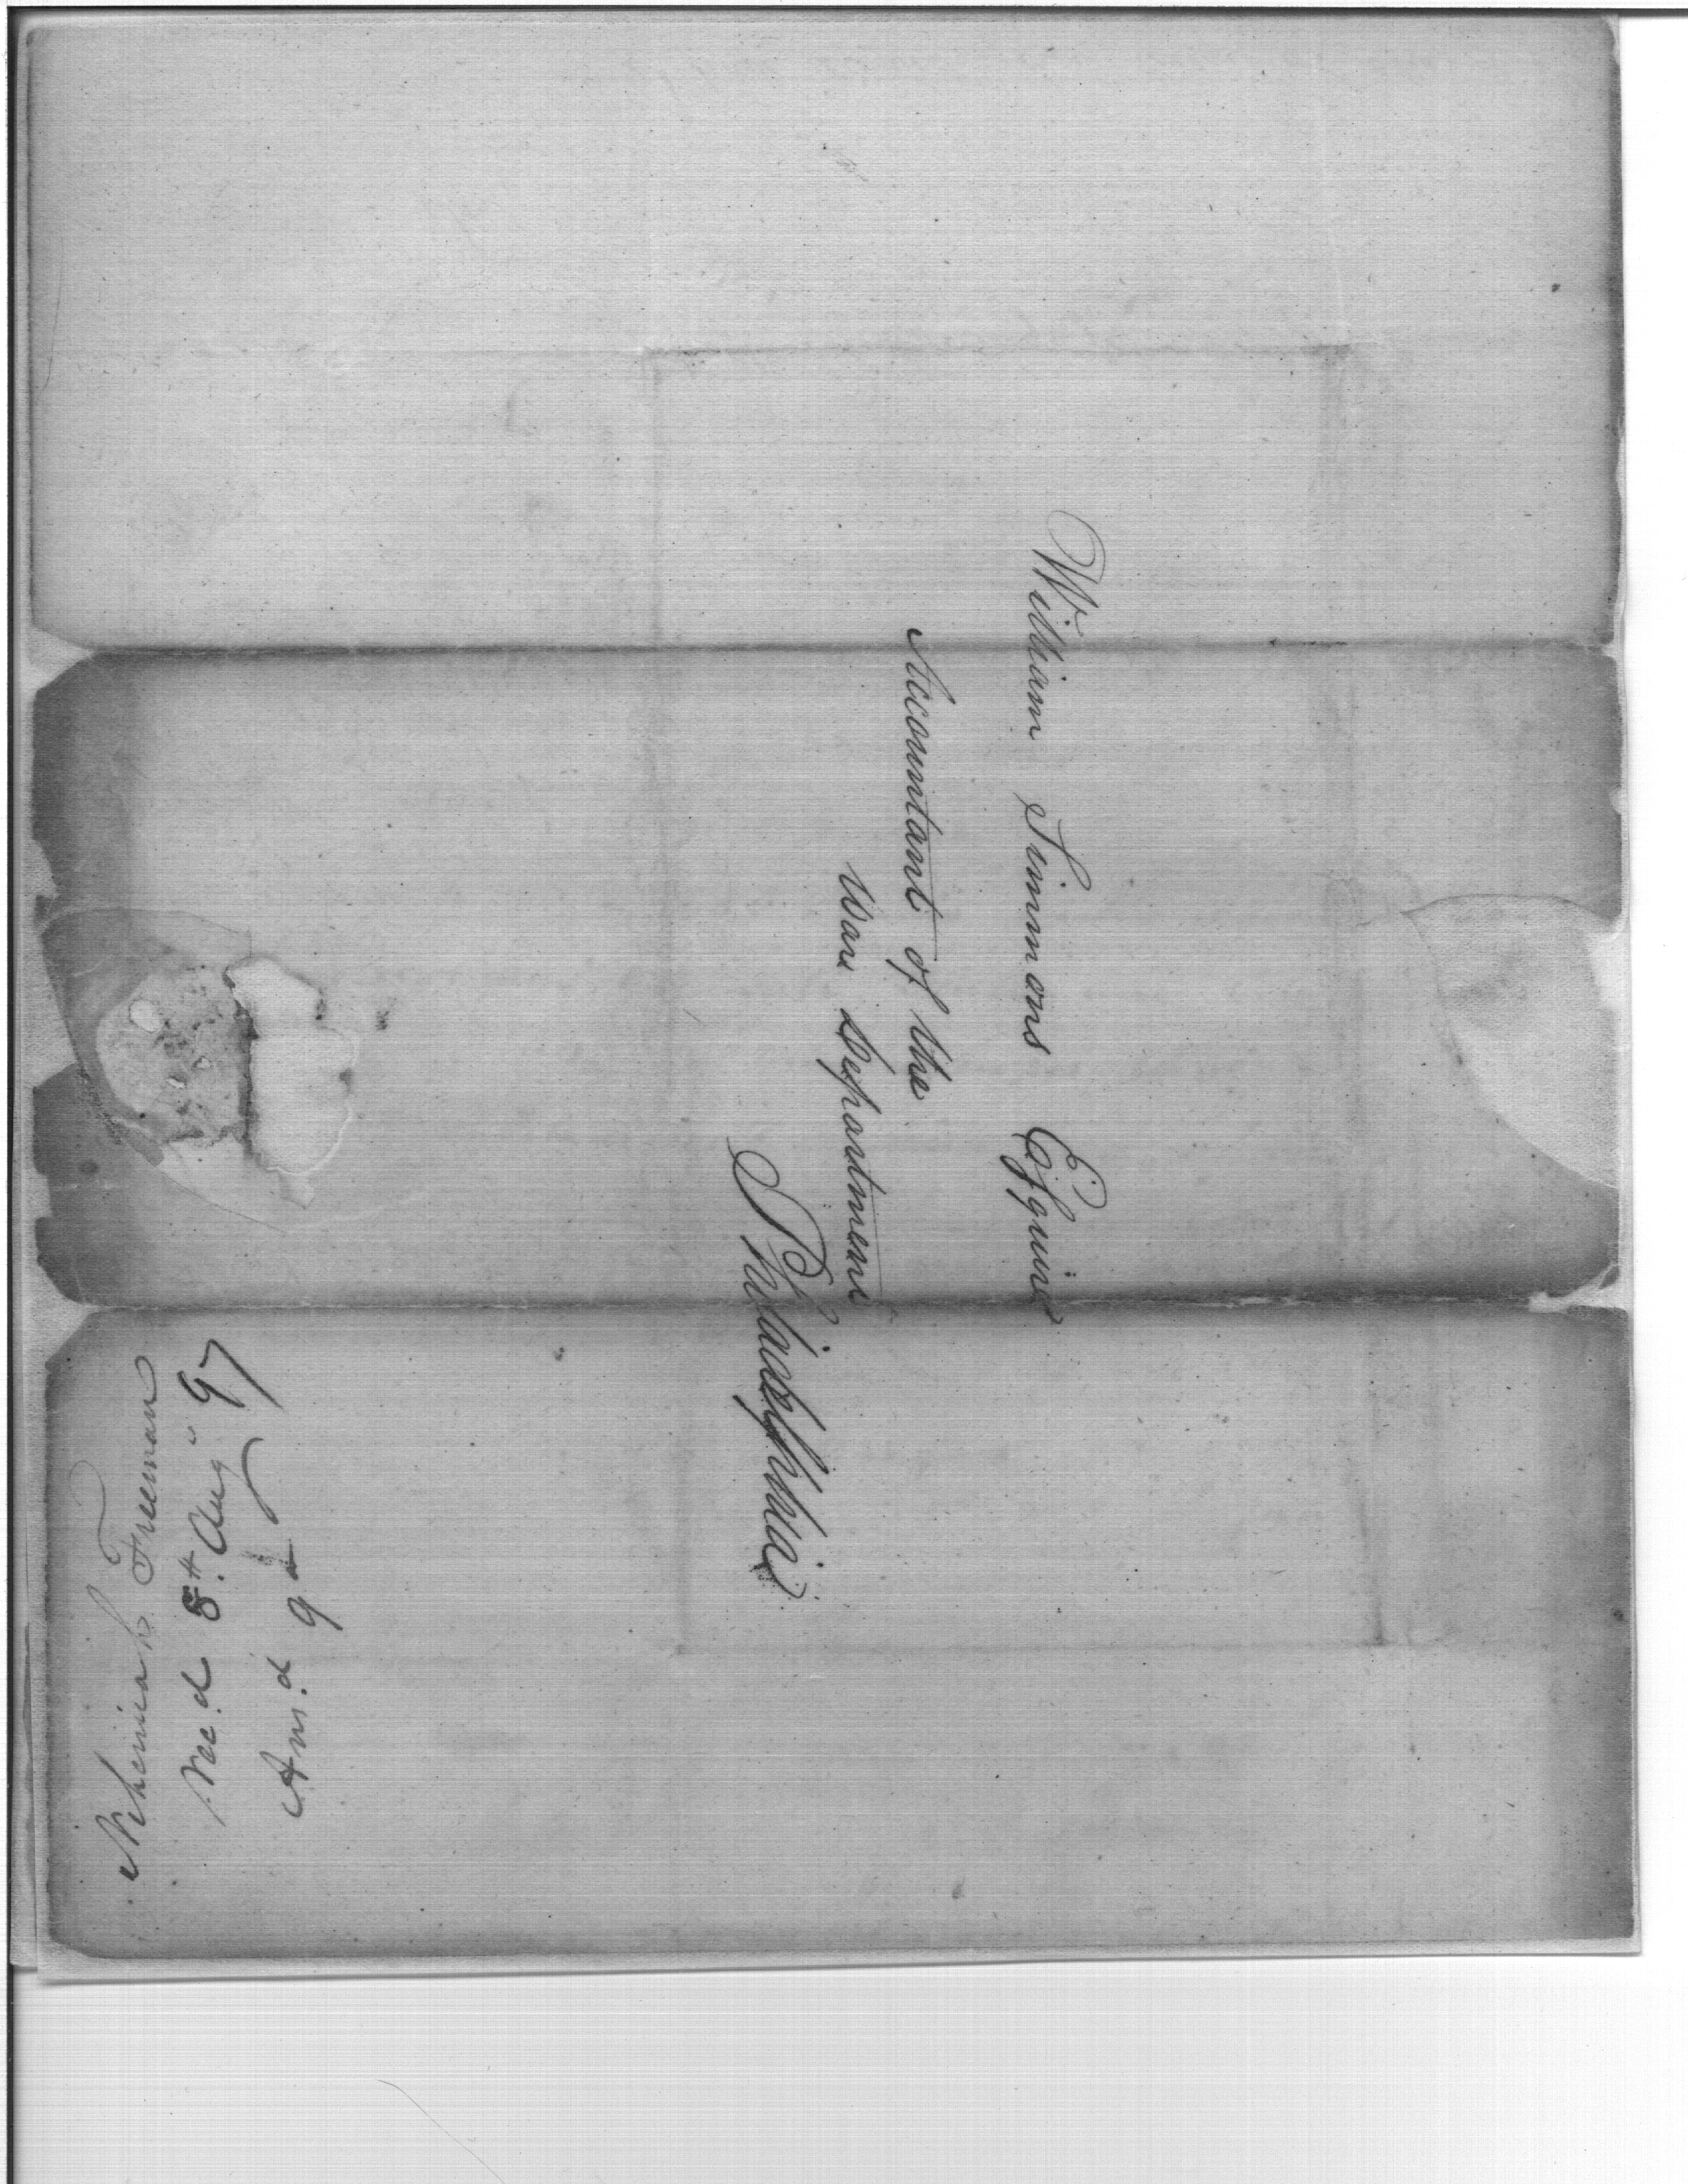 William Simmons Esquire
Accountant of the
War Department
Philadelphia
Nehemiah Freeman
Rec.d 8th Aug" 97
Ans.d 9th